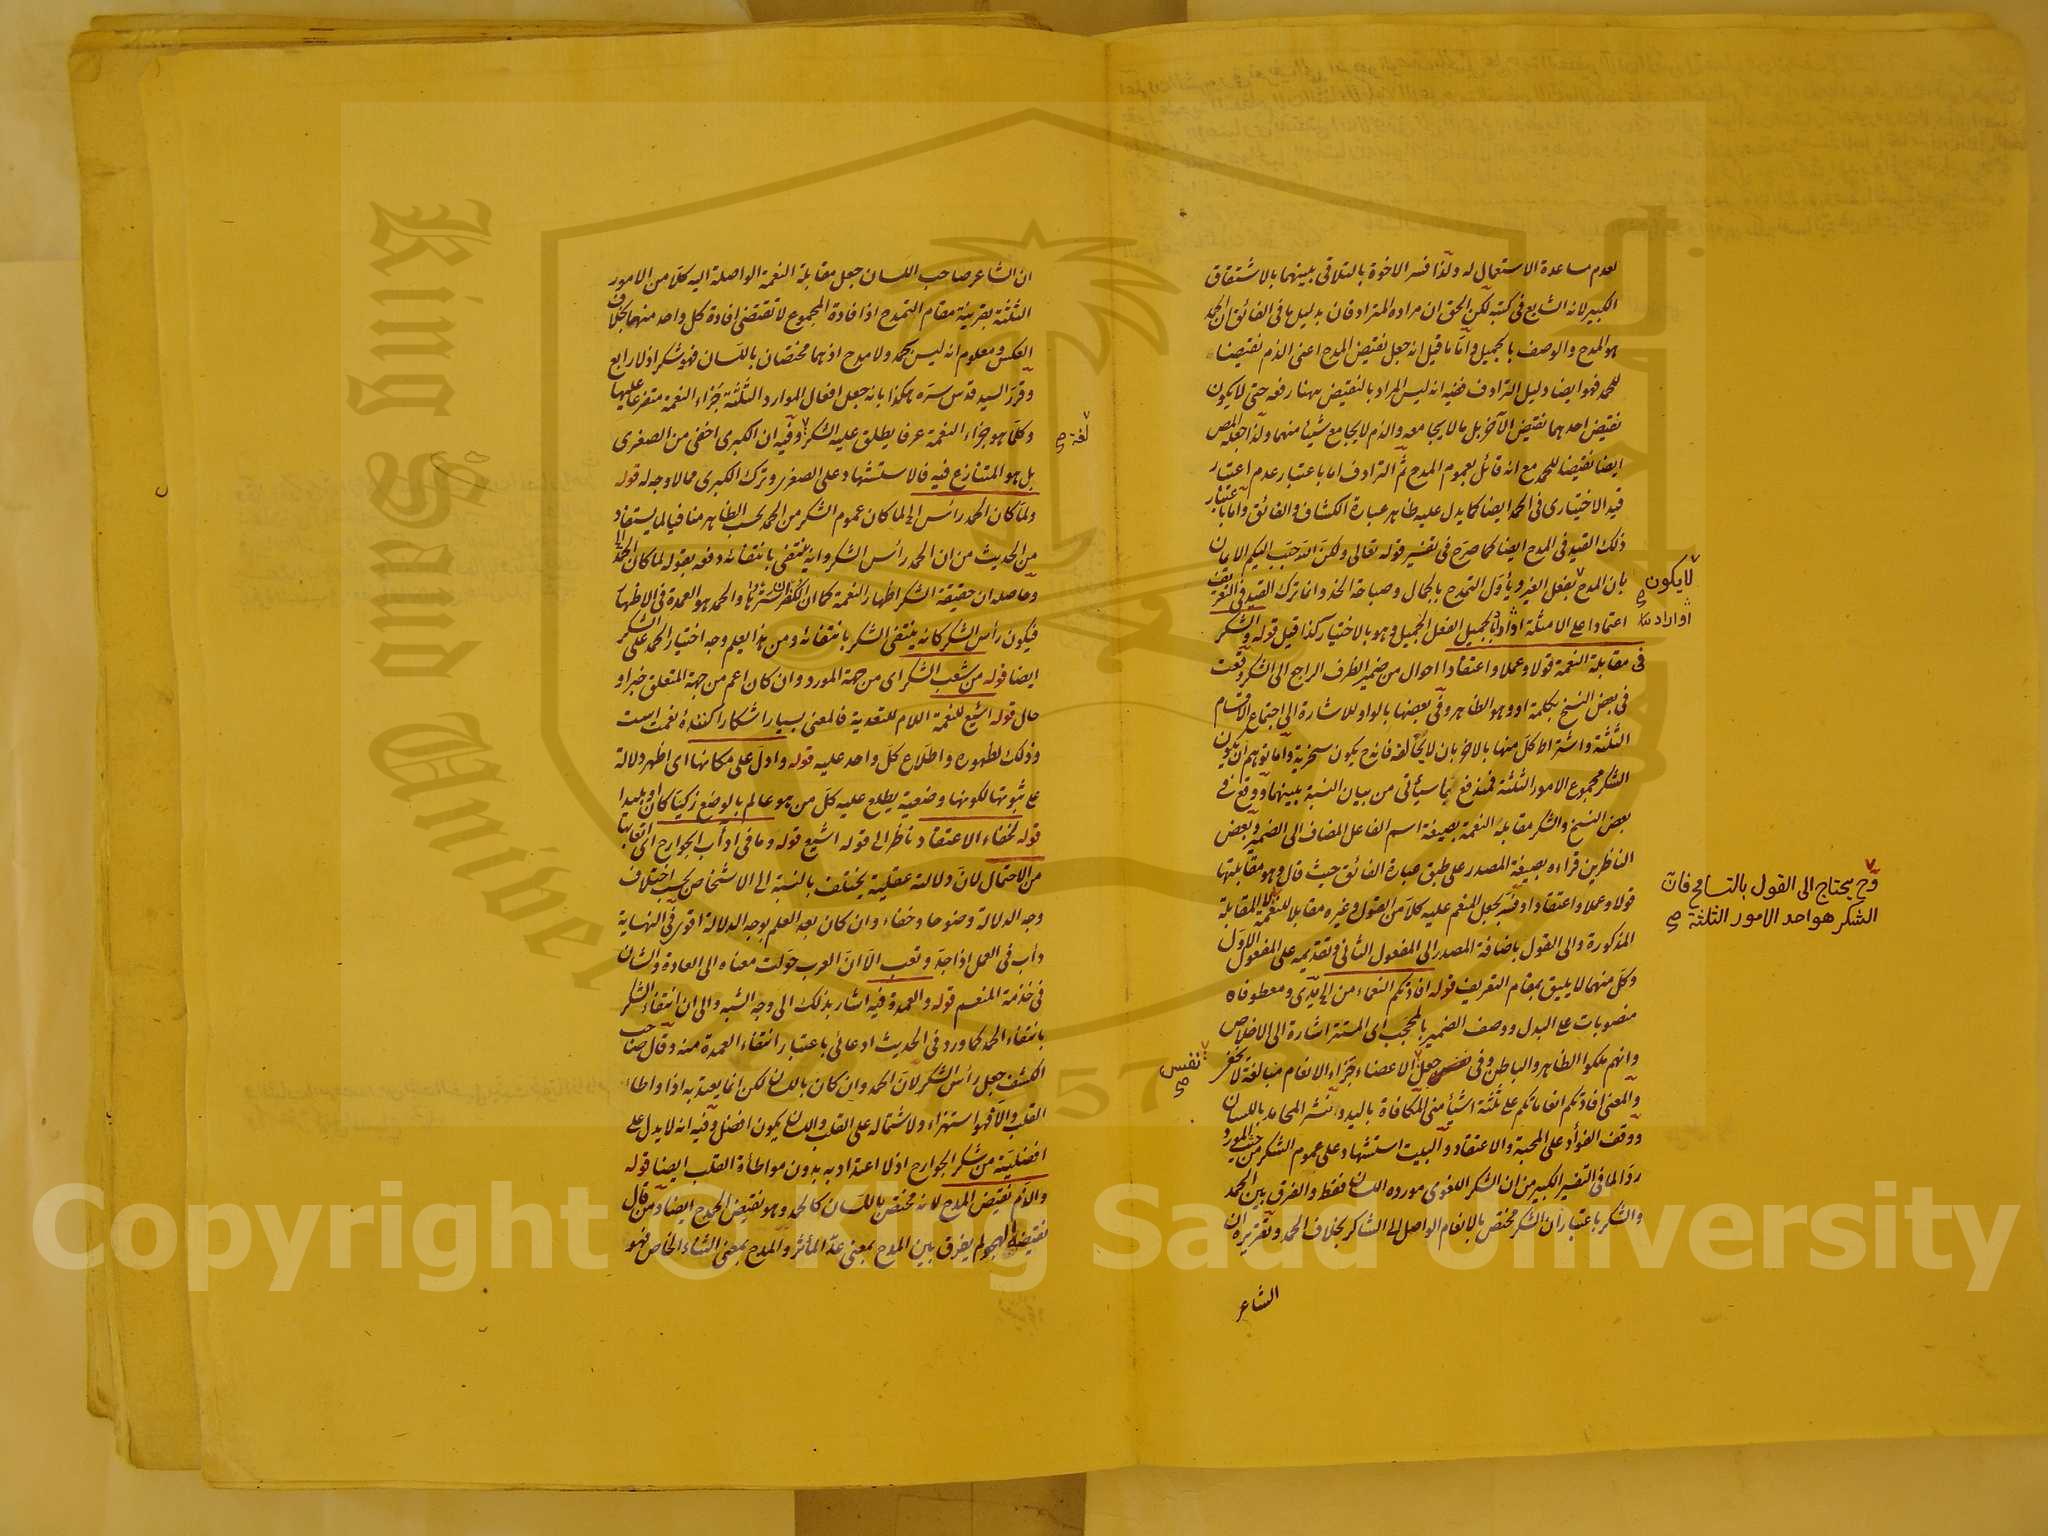 لعدم مساعدة الاستعمال له ولذا فسر الاخوة بالتلاقي بينهما بالاشتقاق
الكبير لانه الشايع في كتبه لكن الحق ان مراده المترادفان بدليل ما في الفائق ان الحمد
هو المدح والوصف بالجميل واما ما قيل انه جعل نقيض المدح اعنى الذم نقيضا
للحمد فهو ايضا دليل الترادف ففيه انه ليس المراد بالنقيض ههنا رفعه حتى لا يكون
نقيض احدهما نقيض الآخر بل ما لا يجامعه والذم لا يجامع شيئا منهما ولذا جعله المص
ايضا نقيضا للحمد مع انه قائل بعموم المدح ثم الترادف اما باعتبار عدم اعتبار
قيد الاختيارى في الحمد ايضا كما يدل عليه ظاهر عبارة الكشاف والفائق واما باعتبار
ذلك القيد في المدح ايضا كما صرح في تفسير قوله تعالى ولكن الله حبب اليكم الايمان
بان المدح بفعل الغير ويأول التمدح بالجمال وصباحة الخد وانما ترك القيد في التعريف
اعتمادا على الامثلة او اراد بالجميل الفعل الجميل وهو بالاختيار كذا قيل قوله والشكر
في مقابلة النعمة قولا وعملا واعتقادا احوال من ضمير الظرف الراجع الى الشكر وقعت
في بعض النسخ بكلمة او وهو الظاهر وفي بعضها بالواو للاشارة الى اجتماع الاقسام
الثلثة واشتراط كل منها بالاخر بان لا يخالفه فانه ح يكون سخرية واما توهم ان يكون
الشكر مجموع الامور الثلثة فمندفع بما سيأتى من بيان النسبة بينهما ووقع في
بعض النسخ والشكر مقابلة النعمة بصيغة اسم الفاعل المضاف الى الضمير وبعض
الناظرين قراءه بصيغة المصدر على طبق عبارة الفائق حيث قال وهو مقابلتها
قولا وعملا واعتقادا وفسر بجعل المنعم عليه كلا من القول وغيره مقابلا للنعمة لا المقابلة
المذكورة والى القول باضافة المصدر الى المفعول الثانى وتقديمه على المفعول الاول
وكل منهما لا يليق بمقام التعريف قوله افادتكم النعماء من الى يدى ومعطوفاه
منصوبات على البدل ووصف الضمير بالمحجب اى المستتر اشارة الى الاخلاص
وانهم ملكوا الظاهر والباطن وفى جعل الاعضاء جزاء الانعام مبالغة لا تخفى
والمعنى افادتكم انعاماتكم على ثلثة اشياء منى المكافاة باليد ونشر المحامد باللسان
ووقف الفؤاد على المحبة والاعتقاد والبيت استشهاد على عموم الشكر من حيث المورد
رد الما في التفسير الكبير من ان الشكر اللغوى مورده اللسان فقط والفرق بين الحمد
والشكر باعتبار ان الشكر مختص بالانعام الواصل الى الشاكر بخلاف الحمد وتقريره ان
الشاعر
لا يكون صح
او اراد
وح يحتاج الى القول بالتسامح فان
الشكر هو احد الامور الثلثة صح
نفس صح
ان الشاعر صاحب اللسان جعل مقابلة النعمة الواصلة اليه كلا من الامور
الثلثة بقرينة مقام التمدح اذ افادة المجموع لا تقتضى افادة كل واحد منهما بخلاف
العكس ومعلوم انه ليس بحمد ولا مدح اذ هما مختصان باللسان فهو شكر اذ لا رابع
وقرر السيد قدس سره هكذا بانه جعل افعال الموارد الثلثة جزاء النعمة متفرعا عليها
وكلما هو جزاء النعمة عرفا يطلق عليه الشكر وفيه ان الكبرى اخفى من الصغرى
بل هو المتنازع فيه فالاستشهاد على الصغرى وترك الكبرى مما لا وجه له قوله
ولما كان الحمد راس الى لما كان عموم الشكر من الحمد بحسب الظاهر منافيا لما يستفاد
من الحديث من ان الحمد رأس الشكر وانه ينتفى بانتفائه دفعه بقوله لما كان الحمد الى
وحاصله ان حقيقة الشكر اظهار النعمة كما ان الكفران سترها والحمد هو العمدة في الاظهار
فيكون رأس الشكر كانه ينتفى الشكر بانتفائه ومن هذا يعلم وجه اختيار الحمد على الشكر
ايضا قوله من شعب الشكر اى من جهة المورد وان كان اعم من جهة المتعلق خبر او
حال قوله اشيع للنعمة اللام للتعدية فالمعنى بسيار اشكارا كننده نعمت است
وذلك لظهوره واطلاع كل واحد عليه قوله وادل على مكانها اى اظهر دلالة
على ثبوتها لكونها وضعية يطلع عليه كل من هو عالم بالوضع زكيا كان او بليدا
قوله لخفاء الاعتقاد ناظر الى قوله اشيع قوله وما في ادآب الجوارح اى اتعابها
من الاحتمال لان دلالته عقلية يختلف بالنسبة الى الاشخاص بحسب اختلاف
وجه الدلالة وضوحا وخفاء وان كان بعد العلم بوجه الدلالة اقوى في النهاية
دأب في العمل اذا جد وتعب الا ان العرب حولت معناه الى العادة والشان
في خدمة المنعم قوله والعمدة فيه اشار بذلك الى وجه الشبه والى ان انتفاء الشكر
بانتفاء الحمد كما ورد في الحديث ادعائى باعتبار انتفاء العمدة منه وقال صاحب
الكشف جعل رأس الشكر لان الحمد وان كان باللسان لكن انما يعتد به اذا واطاء
القلب والا فهو استهزاء ولاشتماله على القلب واللسان يكون افضل وفيه انه لا يدل على
افضليته من شكر الجوارح اذ لا اعتداد به بدون مواطأة القلب ايضا قوله
والذم نقيض المدح لانه مختص باللسان كالحمد وهو نقيض الحمد ايضا ومن قال
نقيضه الهجو لم يفرق بين المدح بمعنى عد المآثر والمدح بمعنى الثناء الخاص فهو
لغة صح
King Saud University
1957
Copyright © King Saud University